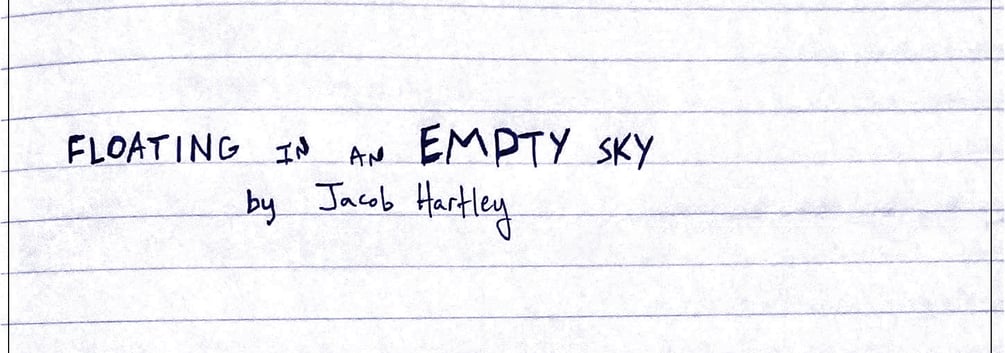 FLOATING IN AN EMPTY SKY
by Jacob Hartley